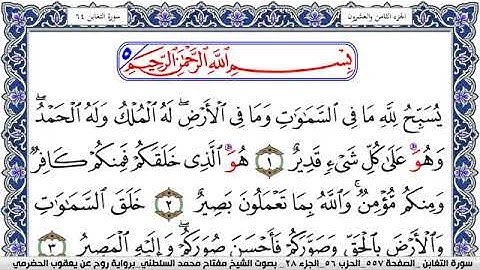 الجزء الثامن والعشرون
سورة التغابن ٦٤
بِسْمِ اللَّهِ الرَّحْمَٰنِ الرَّحِيمِ
يُسَبِّحُ لِلَّهِ مَا فِي السَّمَٰوَٰتِ وَمَا فِي الْأَرْضِ ۖ لَهُ الْمُلْكُ وَلَهُ الْحَمْدُ ۖ
وَهُوَ عَلَىٰ كُلِّ شَيْءٍ قَدِيرٌ ١ هُوَ الَّذِي خَلَقَكُمْ فَمِنكُمْ كَافِرٌ
وَمِنكُم مُّؤْمِنٌ ۚ وَاللَّهُ بِمَا تَعْمَلُونَ بَصِيرٌ ٢ خَلَقَ السَّمَٰوَٰتِ
وَالْأَرْضَ بِالْحَقِّ وَصَوَّرَكُمْ فَأَحْسَنَ صُوَرَكُمْ ۖ وَإِلَيْهِ الْمَصِيرُ ٣
سورة التغابن - الصفحة ٥٥٧ - الحزب ٥٦ - الجزء ٢٨ - بصوت الشيخ مفتاح محمد السلطني - برواية روح عن يعقوب الحضرمي